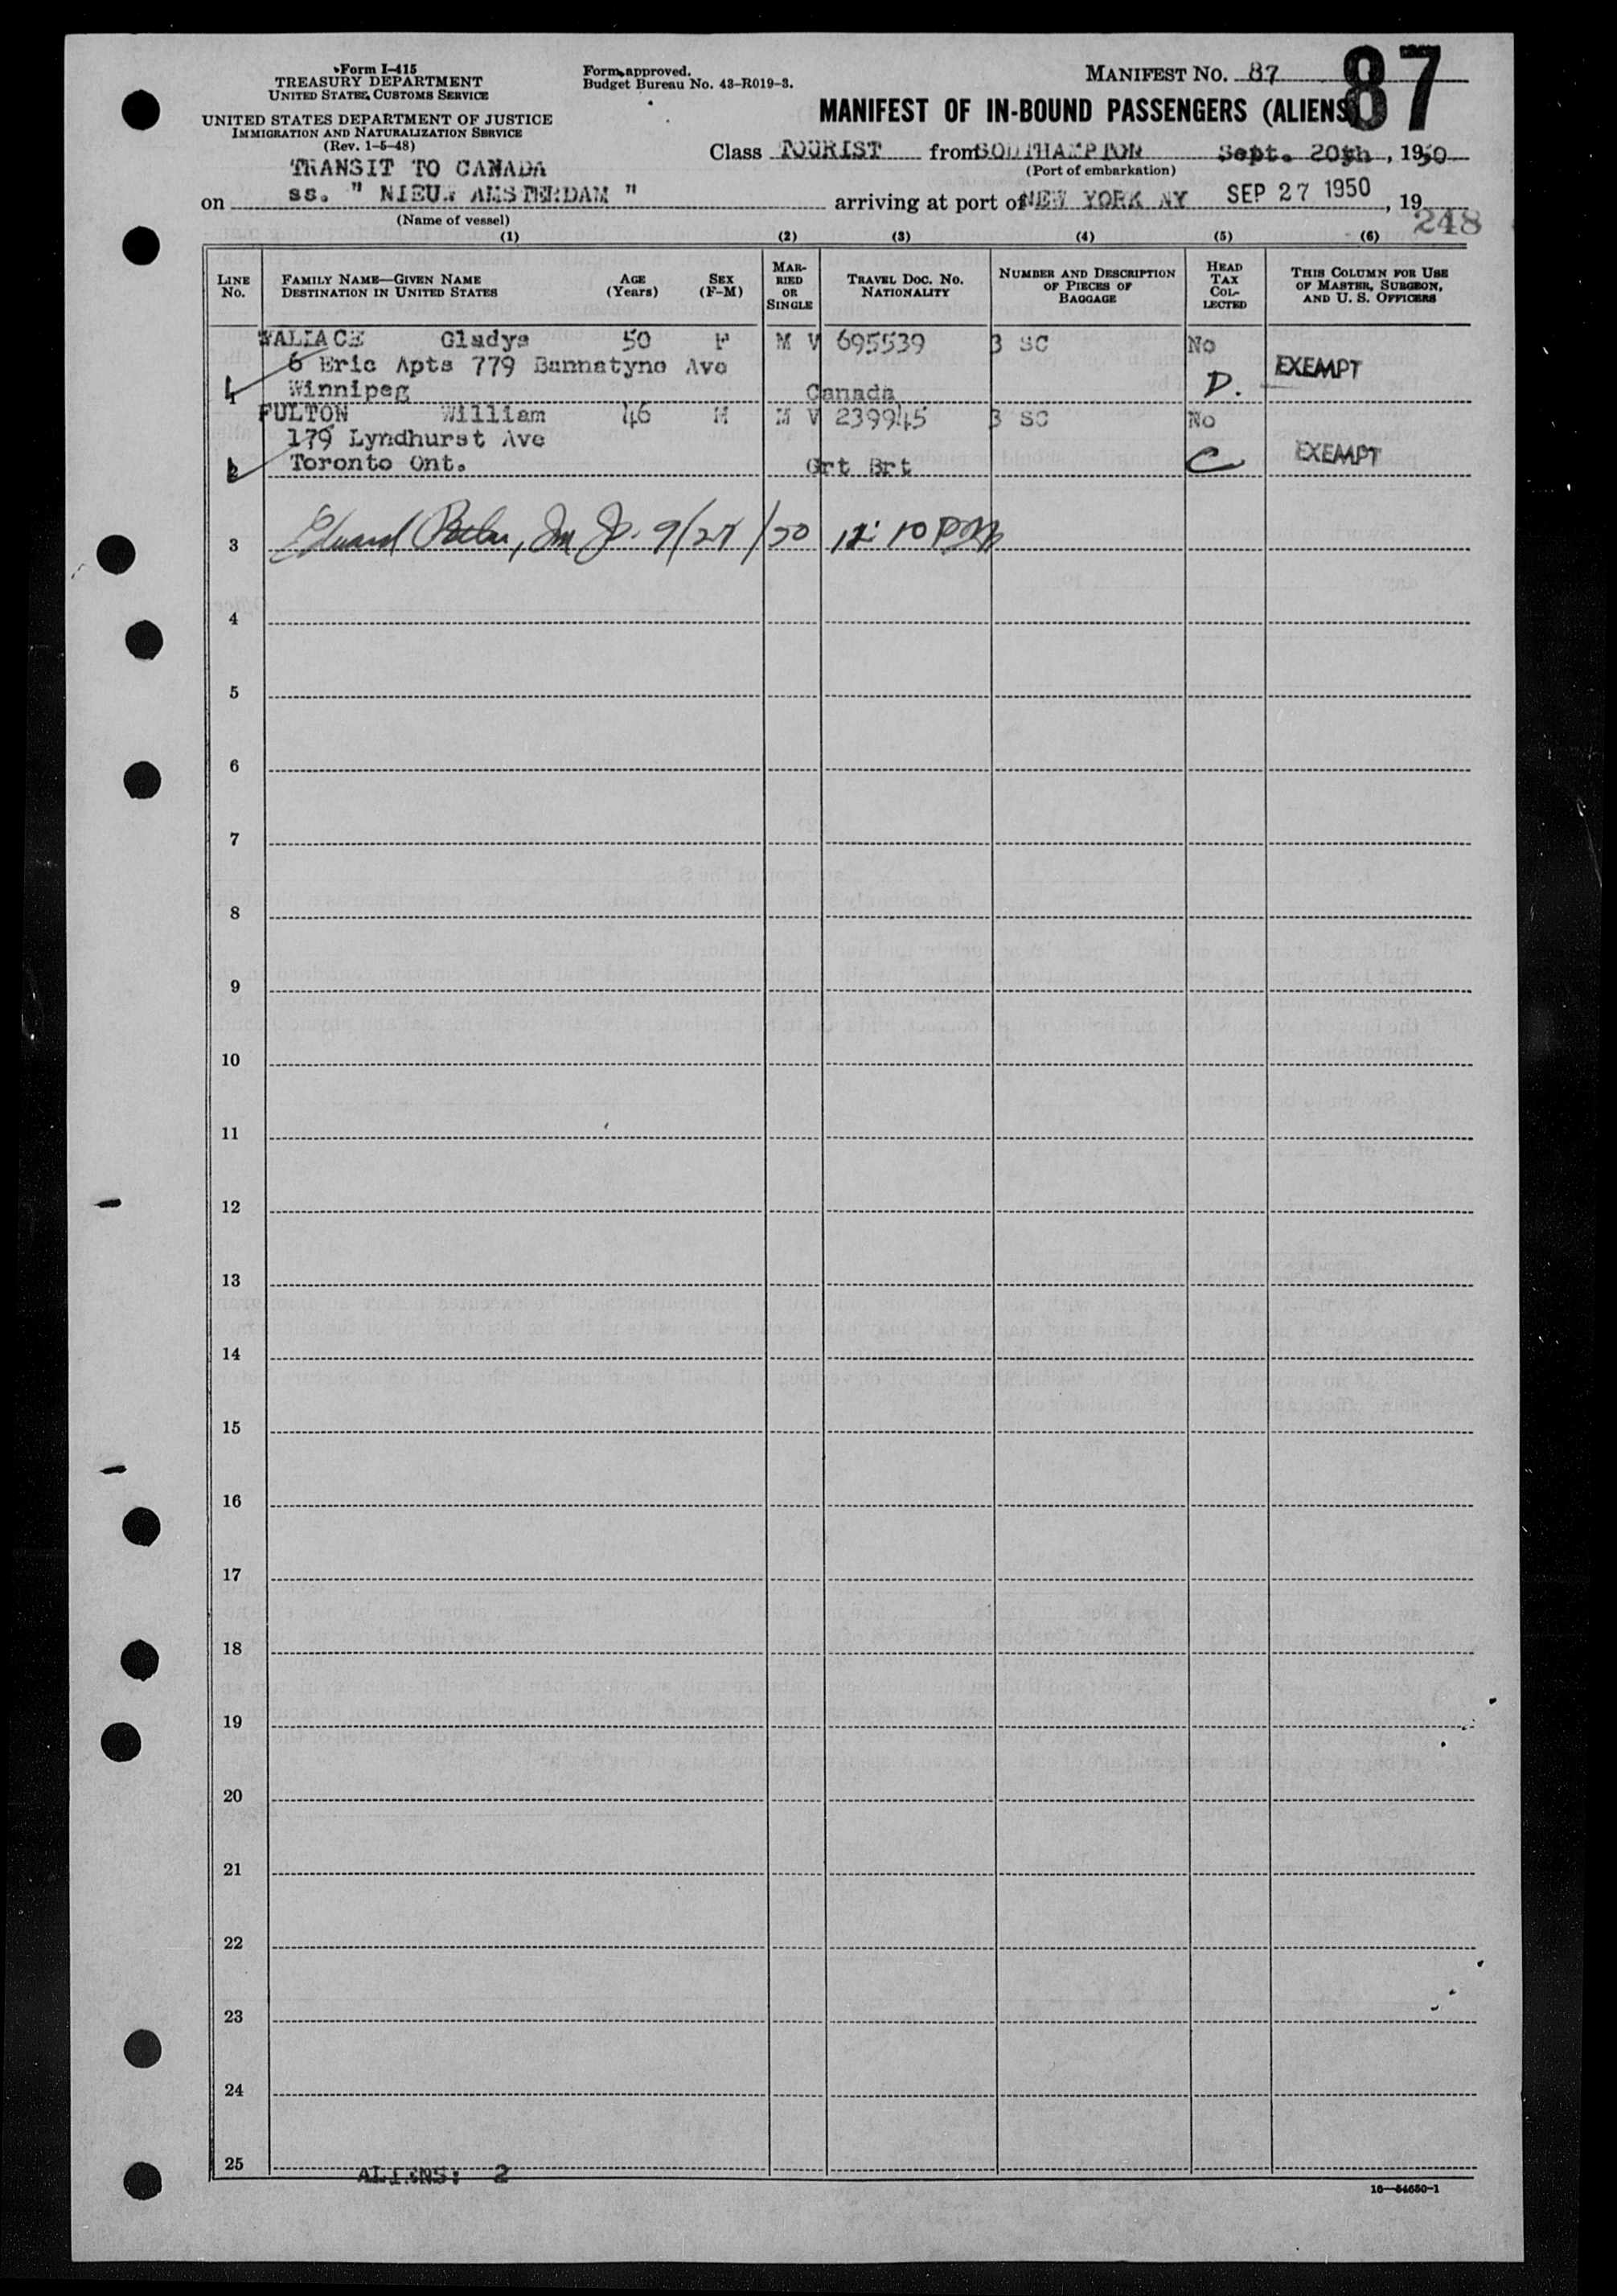 Form I-415
TREASURY DEPARTMENT
UNITED STATES CUSTOMS SERVICE
UNITED STATES DEPARTMENT OF JUSTICE
IMMIGRATION AND NATURALIZATION SERVICE
(Rev. 1-5-48)
Form approved.
Budget Bureau No. 43-R019-3.
MANIFEST No. 87
87
MANIFEST OF IN-BOUND PASSENGERS (ALIENS
Class TOURIST from SOUTHAMPTON Sept. 20th, 1950
(Port of embarkation)
TRANSIT TO CANADA
on ss. " NIEUW AMSTERDAM " arriving at port of NEW YORK NY SEP 27 1950, 19
(Name of vessel)
248
(1) (2) (3) (4) (5) (6)
LINE No.
FAMILY NAME—GIVEN NAME
DESTINATION IN UNITED STATES
AGE (Years)
SEX (F-M)
MARRIED OR SINGLE
TRAVEL DOC. No. NATIONALITY
NUMBER AND DESCRIPTION OF PIECES OF BAGGAGE
HEAD TAX COLLECTED
THIS COLUMN FOR USE OF MASTER, SURGEON, AND U. S. OFFICERS
WALLACE Gladys 50 F M V 695539 3 SC No
6 Eric Apts 779 Bannatyne Ave EXEMPT
1 Winnipeg Canada D.
FULTON William 46 M M V 239945 3 SC No
179 Lyndhurst Ave EXEMPT
2 Toronto Ont. Grt Brt C
3 Edward 9/27/50 12:10 PM
4
5
6
7
8
9
10
11
12
13
14
15
16
17
18
19
20
21
22
23
24
25
ALIENS: 2
16—54650-1